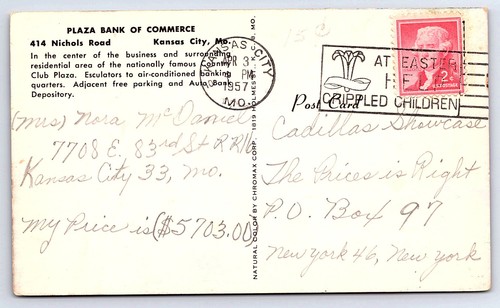 PLAZA BANK OF COMMERCE
414 Nichols Road Kansas City, Mo.
In the center of the business and surrounding
residential area of the nationally famous Country
Club Plaza. Esculators to air-conditioned banking
quarters. Adjacent free parking and Auto Bank
Depository.
KANSAS CITY
APR 3
PM
1957
MO.
15¢
AT EASTER
HELP
CRIPPLED CHILDREN
2¢
Post Card
(Mrs) Nora McDaniel
7708 E. 83rd St RR16
Kansas City 33, Mo.
My Price is ($5703.00)
NATURAL COLOR BY CHROMAX CORP. 1819 HOLMES, K. C., MO.
Cadillac Showcase
The Prices is Right
P.O. Box 97
New York 46, New York